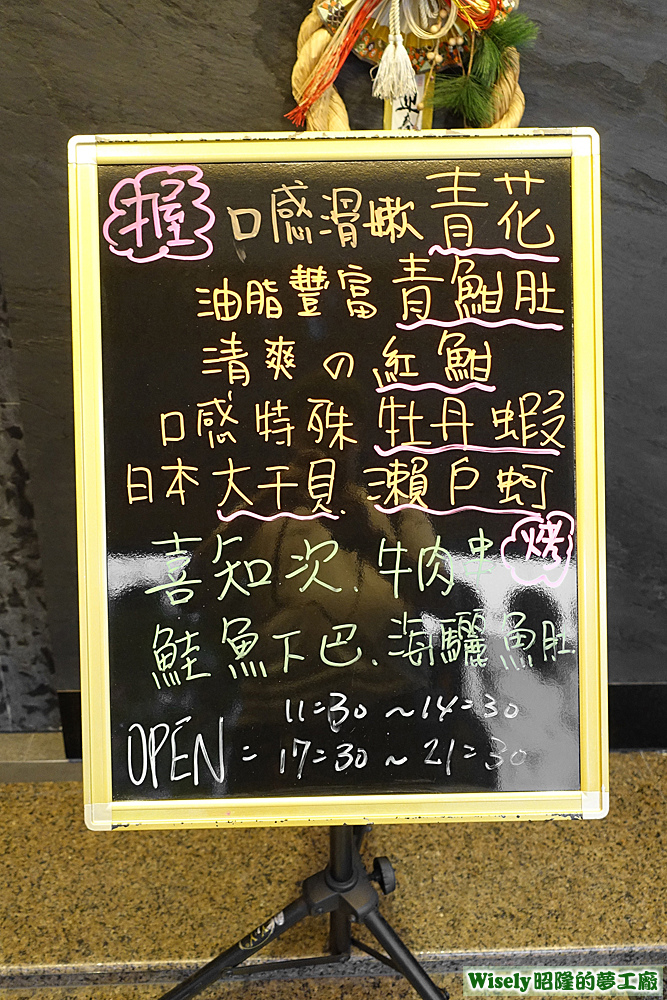 握 口感滑嫩青花
油脂豐富青魽肚
清爽の紅魽
口感特殊牡丹蝦
日本大干貝.瀨戶蚵
喜知次.牛肉串 烤
鮭魚下巴.海驪魚肚
OPEN= 11=30~14=30
17=30~21=30
Wisely昭隆的夢工廠